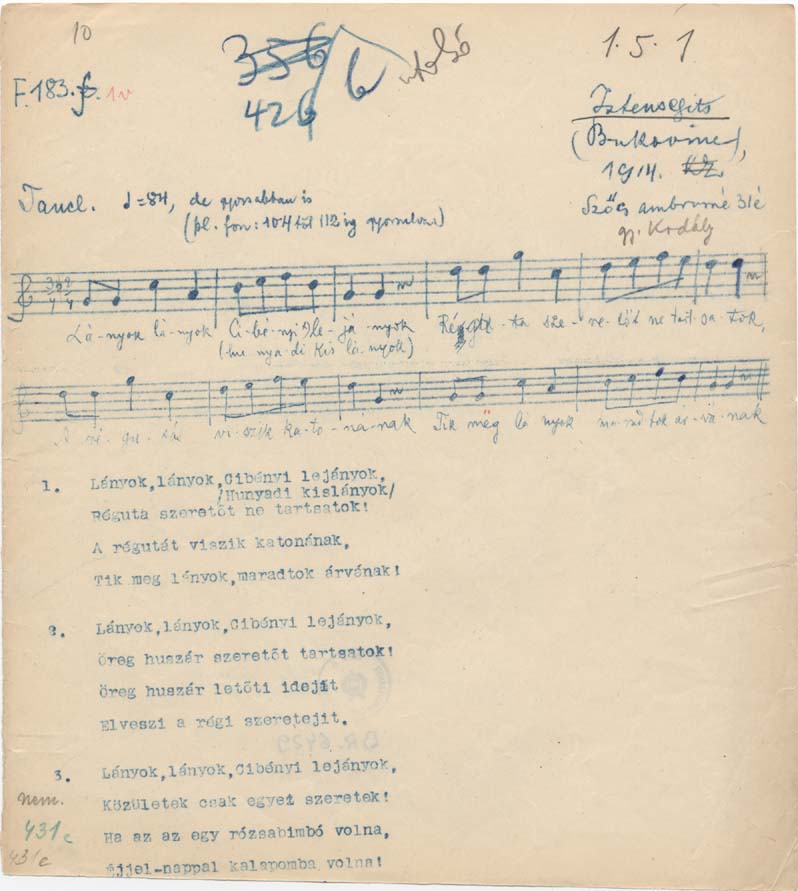 10
356
426
6
utolsó
1.5.1
F.183.f. 1v
Istensegits
(Bukovina),
1914.
Tancl. ♩=84, de gyorsabban is
Szőcs Ambrusné 31é
(pl. fon: 104től 112ig gyorsulva)
gy. Kodály
Lá-nyok lá-nyok Ci-bé-nyi le-já-nyok Ré-gu-ta sze-re-tőt ne tart-sa-tok,
(Hu nya di kis lá-nyok)
A ré-gu-tát vi-szik ka-to-ná-nak Tik még lá nyok ma-rad tok ár-vá-nak
1. Lányok,lányok,Cibényi lejányok,
/Hunyadi kislányok/
Réguta szeretőt ne tartsatok!
A régutát viszik katonának,
Tik meg lányok,maradtok árvának!
2. Lányok,lányok,Cibényi lejányok,
Öreg huszár szeretőt tartsatok!
Öreg huszár letöti idejit
Elveszi a régi szeretejit.
3. Lányok,lányok,Cibényi lejányok,
nem.
Közületek csak egyet szeretek!
431c
Ha az az egy rózsabimbó volna,
431c
Éjjel-nappal kalapomba volna!
BR. 6429